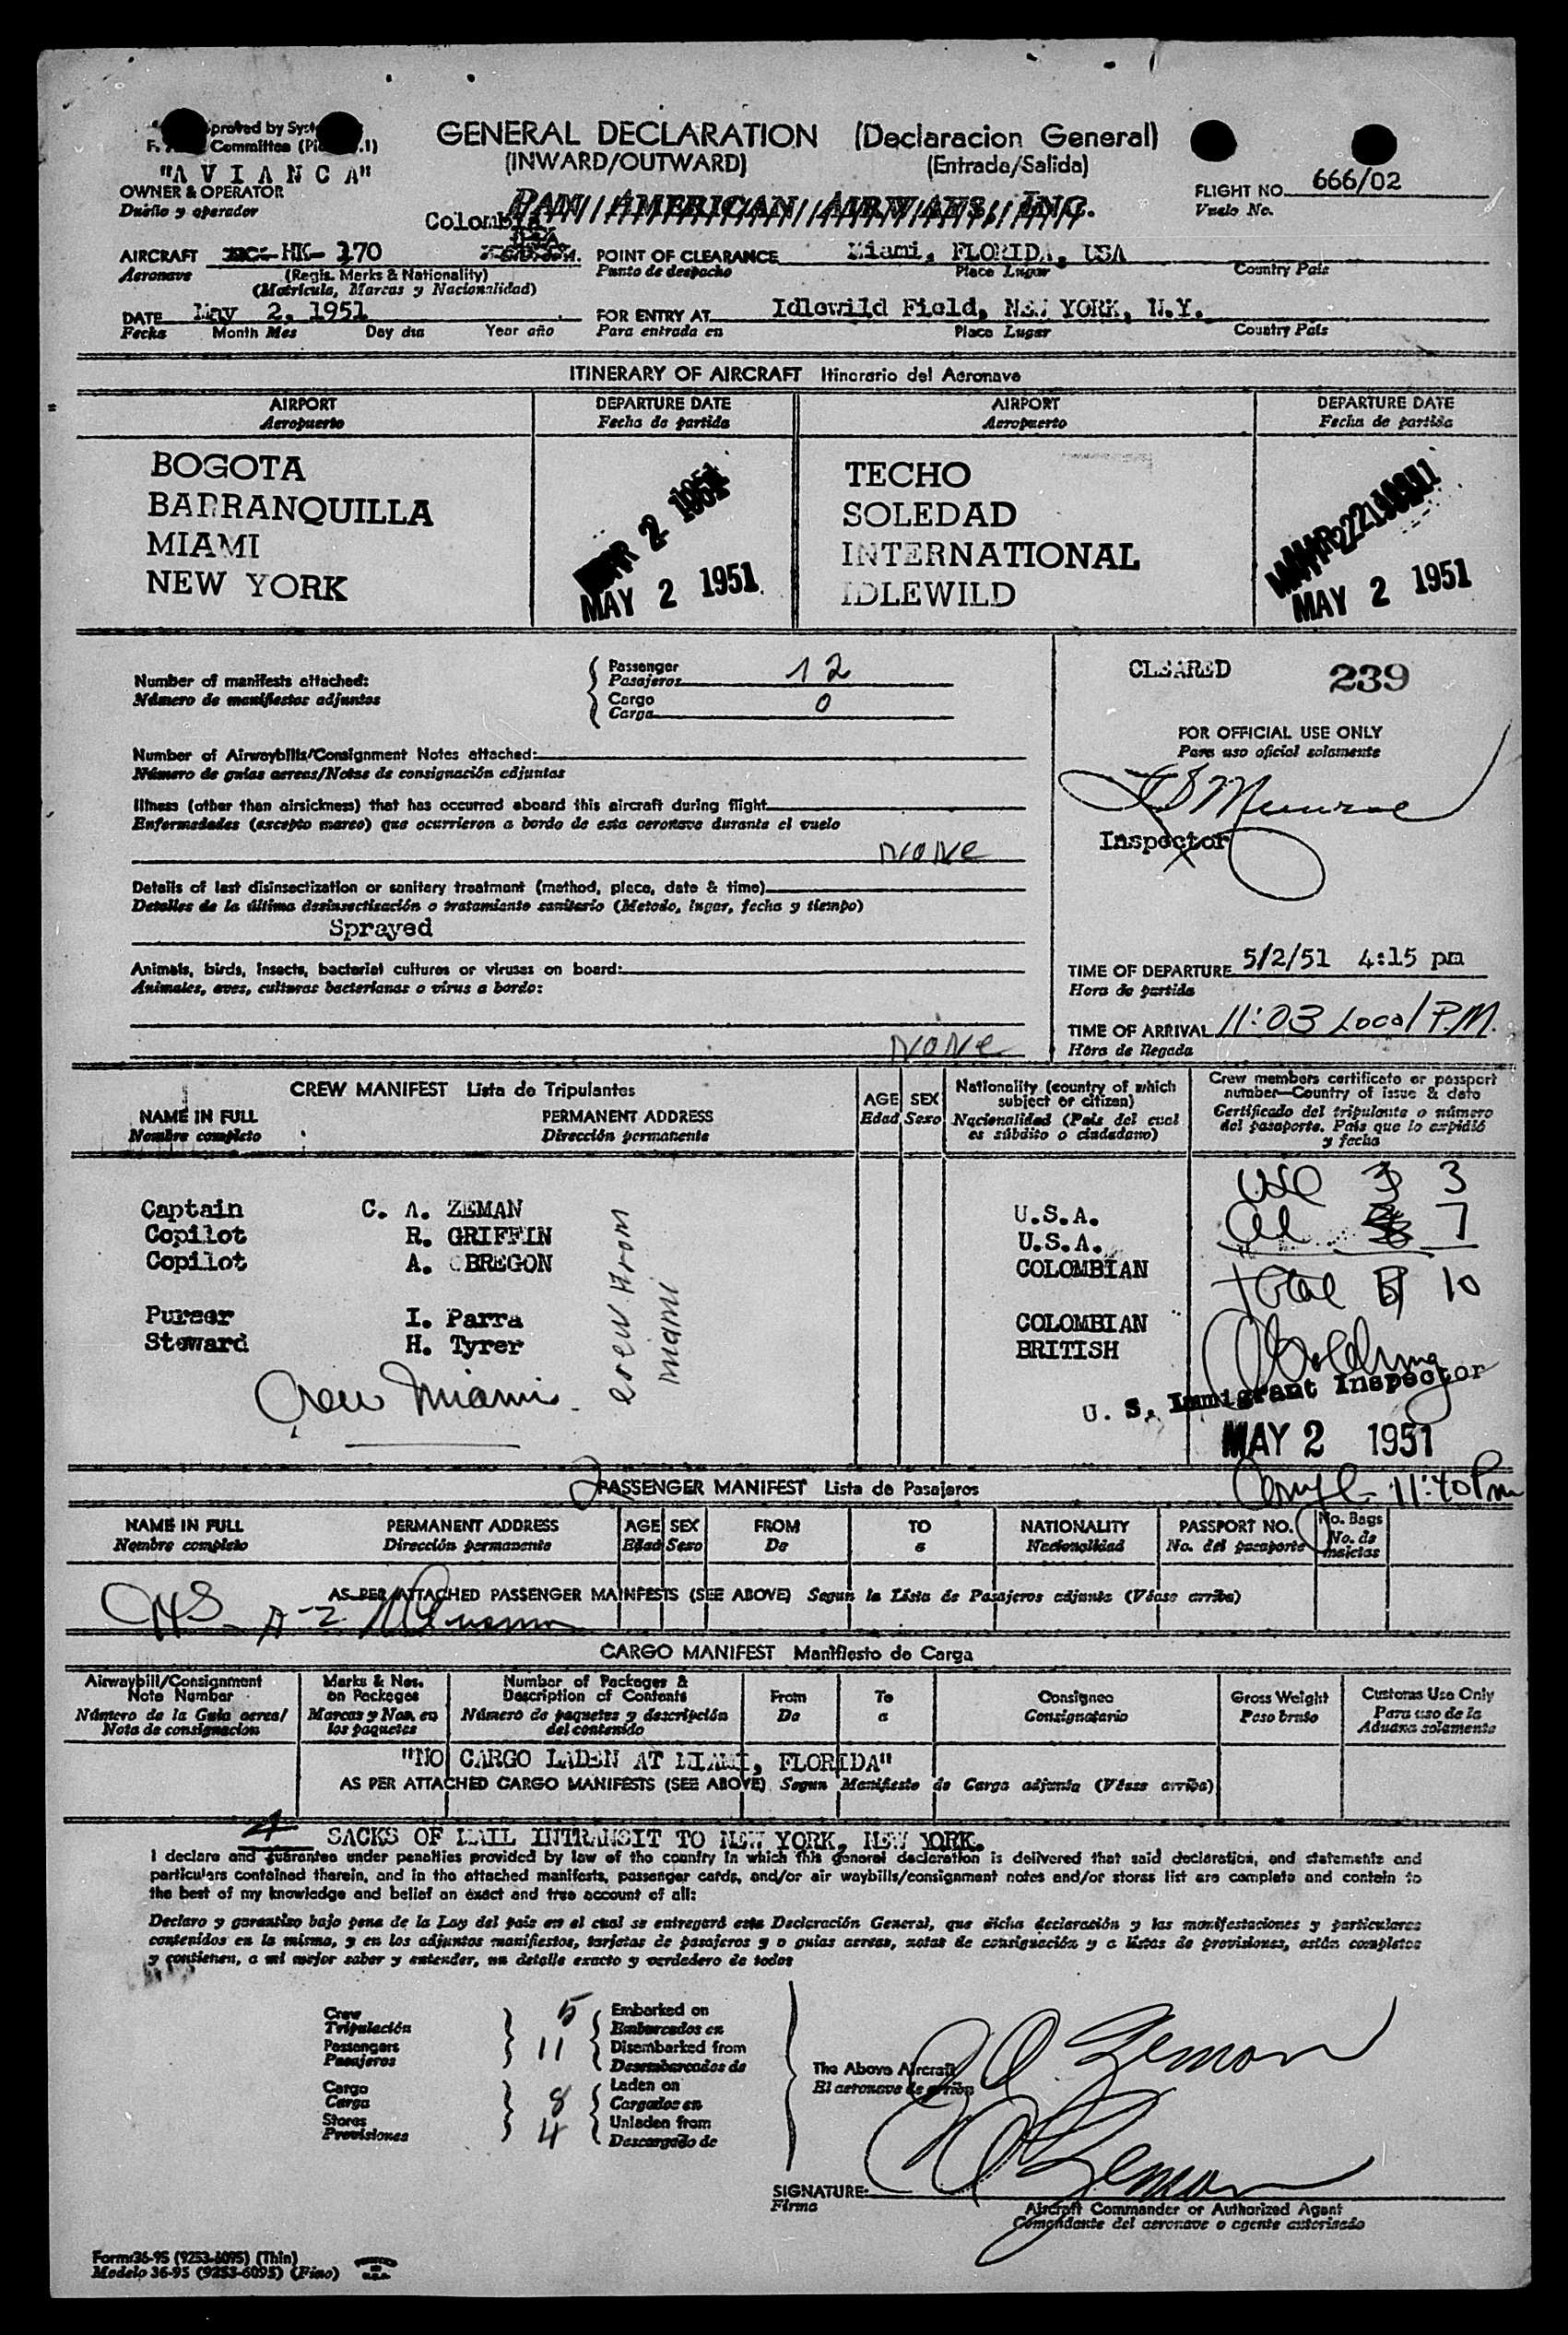 proved by Syst
F. Committee (Pi .1)
"A V I A N C A"
OWNER & OPERATOR
Dueño y operador
GENERAL DECLARATION (Declaracion General)
(INWARD/OUTWARD) (Entrada/Salida)
PAN AMERICAN AIRWAYS, INC.
FLIGHT NO. 666/02
Vuelo No.
Colombia
AIRCRAFT HK- 170
Aeronave (Regis. Marks & Nationality)
(Matrícula, Marcas y Nacionalidad)
POINT OF CLEARANCE Miami, FLORIDA, USA
Punto de despacho Place Lugar Country País
DATE May 2, 1951
Fecha Month Mes Day dia Year año
FOR ENTRY AT Idlewild Field, NEW YORK, N.Y.
Para entrada en Place Lugar Country País
ITINERARY OF AIRCRAFT Itinerario del Aeronave
AIRPORT DEPARTURE DATE AIRPORT DEPARTURE DATE
Aeropuerto Fecha de partida Aeropuerto Fecha de partida
BOGOTA TECHO
BARRANQUILLA SOLEDAD
MIAMI INTERNATIONAL
NEW YORK IDLEWILD
MAR 2 1951
MAY 2 1951 MAY 2 1951
Number of manifests attached:
Número de manifiestos adjuntos
Passenger 12
Pasajeros
Cargo 0
Carga
CLEARED 239
FOR OFFICIAL USE ONLY
Para uso oficial solamente
Munroe
Inspector
Number of Airwaybills/Consignment Notes attached:
Número de guías aereas/Notas de consignación adjuntas
Illness (other than airsickness) that has occurred aboard this aircraft during flight
Enfermedades (excepto mareo) que ocurrieron a bordo de esta aeronave durante el vuelo
NONE
Details of last disinsectization or sanitary treatment (method, place, date & time)
Detalles de la última desinsectización o tratamiento sanitario (Metodo, lugar, fecha y tiempo)
Sprayed
Animals, birds, insects, bacterial cultures or viruses on board:
Animales, aves, culturas bacterianas o virus a bordo:
NONE
TIME OF DEPARTURE 5/2/51 4:15 pm
Hora de partida
TIME OF ARRIVAL 11:03 Local P.M.
Hora de llegada
CREW MANIFEST Lista de Tripulantes
NAME IN FULL PERMANENT ADDRESS
Nombre completo Dirección permanente
AGE SEX
Edad Sexo
Nationality (country of which
subject or citizen)
Nacionalidad (País del cual
es súbdito o ciudadano)
Crew members certificate or passport
number—Country of issue & date
Certificado del tripulante o número
del pasaporte. País que lo expidió
y fecha
Captain C. A. ZEMAN U.S.A.
Copilot R. GRIFFIN U.S.A.
Copilot A. OBREGON COLOMBIAN
Purser I. Parra COLOMBIAN
Steward H. Tyrer BRITISH
Crew From
Miami
Crew Miami
USC 3
al 7
Total 10
U. S. Immigrant Inspector
MAY 2 1951
11:40 Pm
PASSENGER MANIFEST Lista de Pasajeros
NAME IN FULL PERMANENT ADDRESS AGE SEX FROM TO NATIONALITY PASSPORT NO. No. Bags
Nombre completo Dirección permanente Edad Sexo De a Nacionalidad No. del pasaporte No. de maletas
AS PER ATTACHED PASSENGER MAINFESTS (SEE ABOVE) Segun la Lista de Pasajeros adjunta (Véase arriba)
CARGO MANIFEST Manifiesto de Carga
Airwaybill/Consignment
Note Number
Número de la Guía aerea/
Nota de consignacion
Marks & Nos.
on Packages
Marcas y Nos. en
los paquetes
Number of Packages &
Description of Contents
Número de paquetes y descripción
del contenido
From
De
To
a
Consignee
Consignatario
Gross Weight
Peso bruto
Customs Use Only
Para uso de la
Aduana solamente
"NO CARGO LADEN AT MIAMI, FLORIDA"
AS PER ATTACHED CARGO MANIFESTS (SEE ABOVE) Segun Manifiesto de Carga adjunta (Véase arriba)
4 SACKS OF MAIL INTRANSIT TO NEW YORK, NEW YORK.
I declare and guarantee under penalties provided by law of the country in which this general declaration is delivered that said declaration, and statements and
particulars contained therein, and in the attached manifests, passenger cards, and/or air waybills/consignment notes and/or stores list are complete and contain to
the best of my knowledge and belief an exact and true account of all:
Declaro y garantizo bajo pena de la Ley del país en el cual se entregará esta Declaración General, que dicha declaración y las manifestaciones y particulares
contenidos en la misma, y en los adjuntos manifiestos, tarjetas de pasajeros y o guías aereas, notas de consignación y a listas de provisiones, están completos
y contienen, a mi mejor saber y entender, un detalle exacto y verdadero de todos
Crew 5 Embarked on
Tripulación Embarcados en
Passengers 11 Disembarked from
Pasajeros Desembarcados de
Cargo 8 Laden on
Carga Cargados en
Stores 4 Unladen from
Provisiones Descargado de
The Above Aircraft
El aeronave de arriba
C A Zeman
C A Zeman
SIGNATURE:
Firma
Aircraft Commander or Authorized Agent
Comandante del aeronave o agente autorizado
Form 36-95 (9253-6095) (Thin)
Modelo 36-95 (9253-6095) (Fino)
PRINTED
IN
U.S.A.